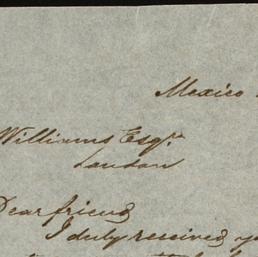 Mexico
Williams Esqr.
London
Dear friend
I duly received